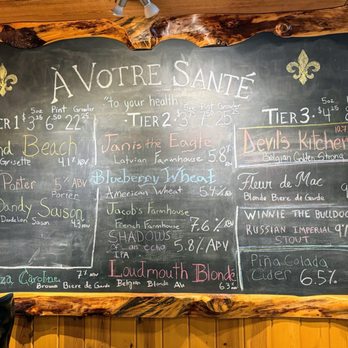 À VOTRE SANTÉ
"to your health"
5oz Pint Growler
ER 1 $3 6 22
nd Beach
Grisette 4.1% ABV
Porter 5% ABV
Dandy Saison
Dandelion Saison 4.9%
za Caroline 7% ABV
Brown Biere de Garde
5oz Pint Growler
TIER 2 $3 7 25
Janis the Eagle
Latvian Farmhouse 5.8%
Blueberry Wheat
American Wheat 5.4%
Jacob's Farmhouse
French Farmhouse 7.6%
SHADOWS
IPA 5.8% ABV
Loudmouth Blonde
Belgian Blonde Ale 6.3%
5oz
TIER 3 $4 8
Devil's Kitchen
Belgian Golden Strong
Fleur de Mac
Blonde Biere de Garde
WINNIE THE BULLDOG
RUSSIAN IMPERIAL 9%
STOUT
Piña Colada
Cider 6.5%